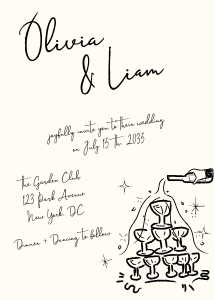 Olivia
& Liam
joyfully invite you to their wedding
on July 15 th. 2035
The Garden Club
123 Park Avenue
New York. DC
Dinner + Dancing to follow